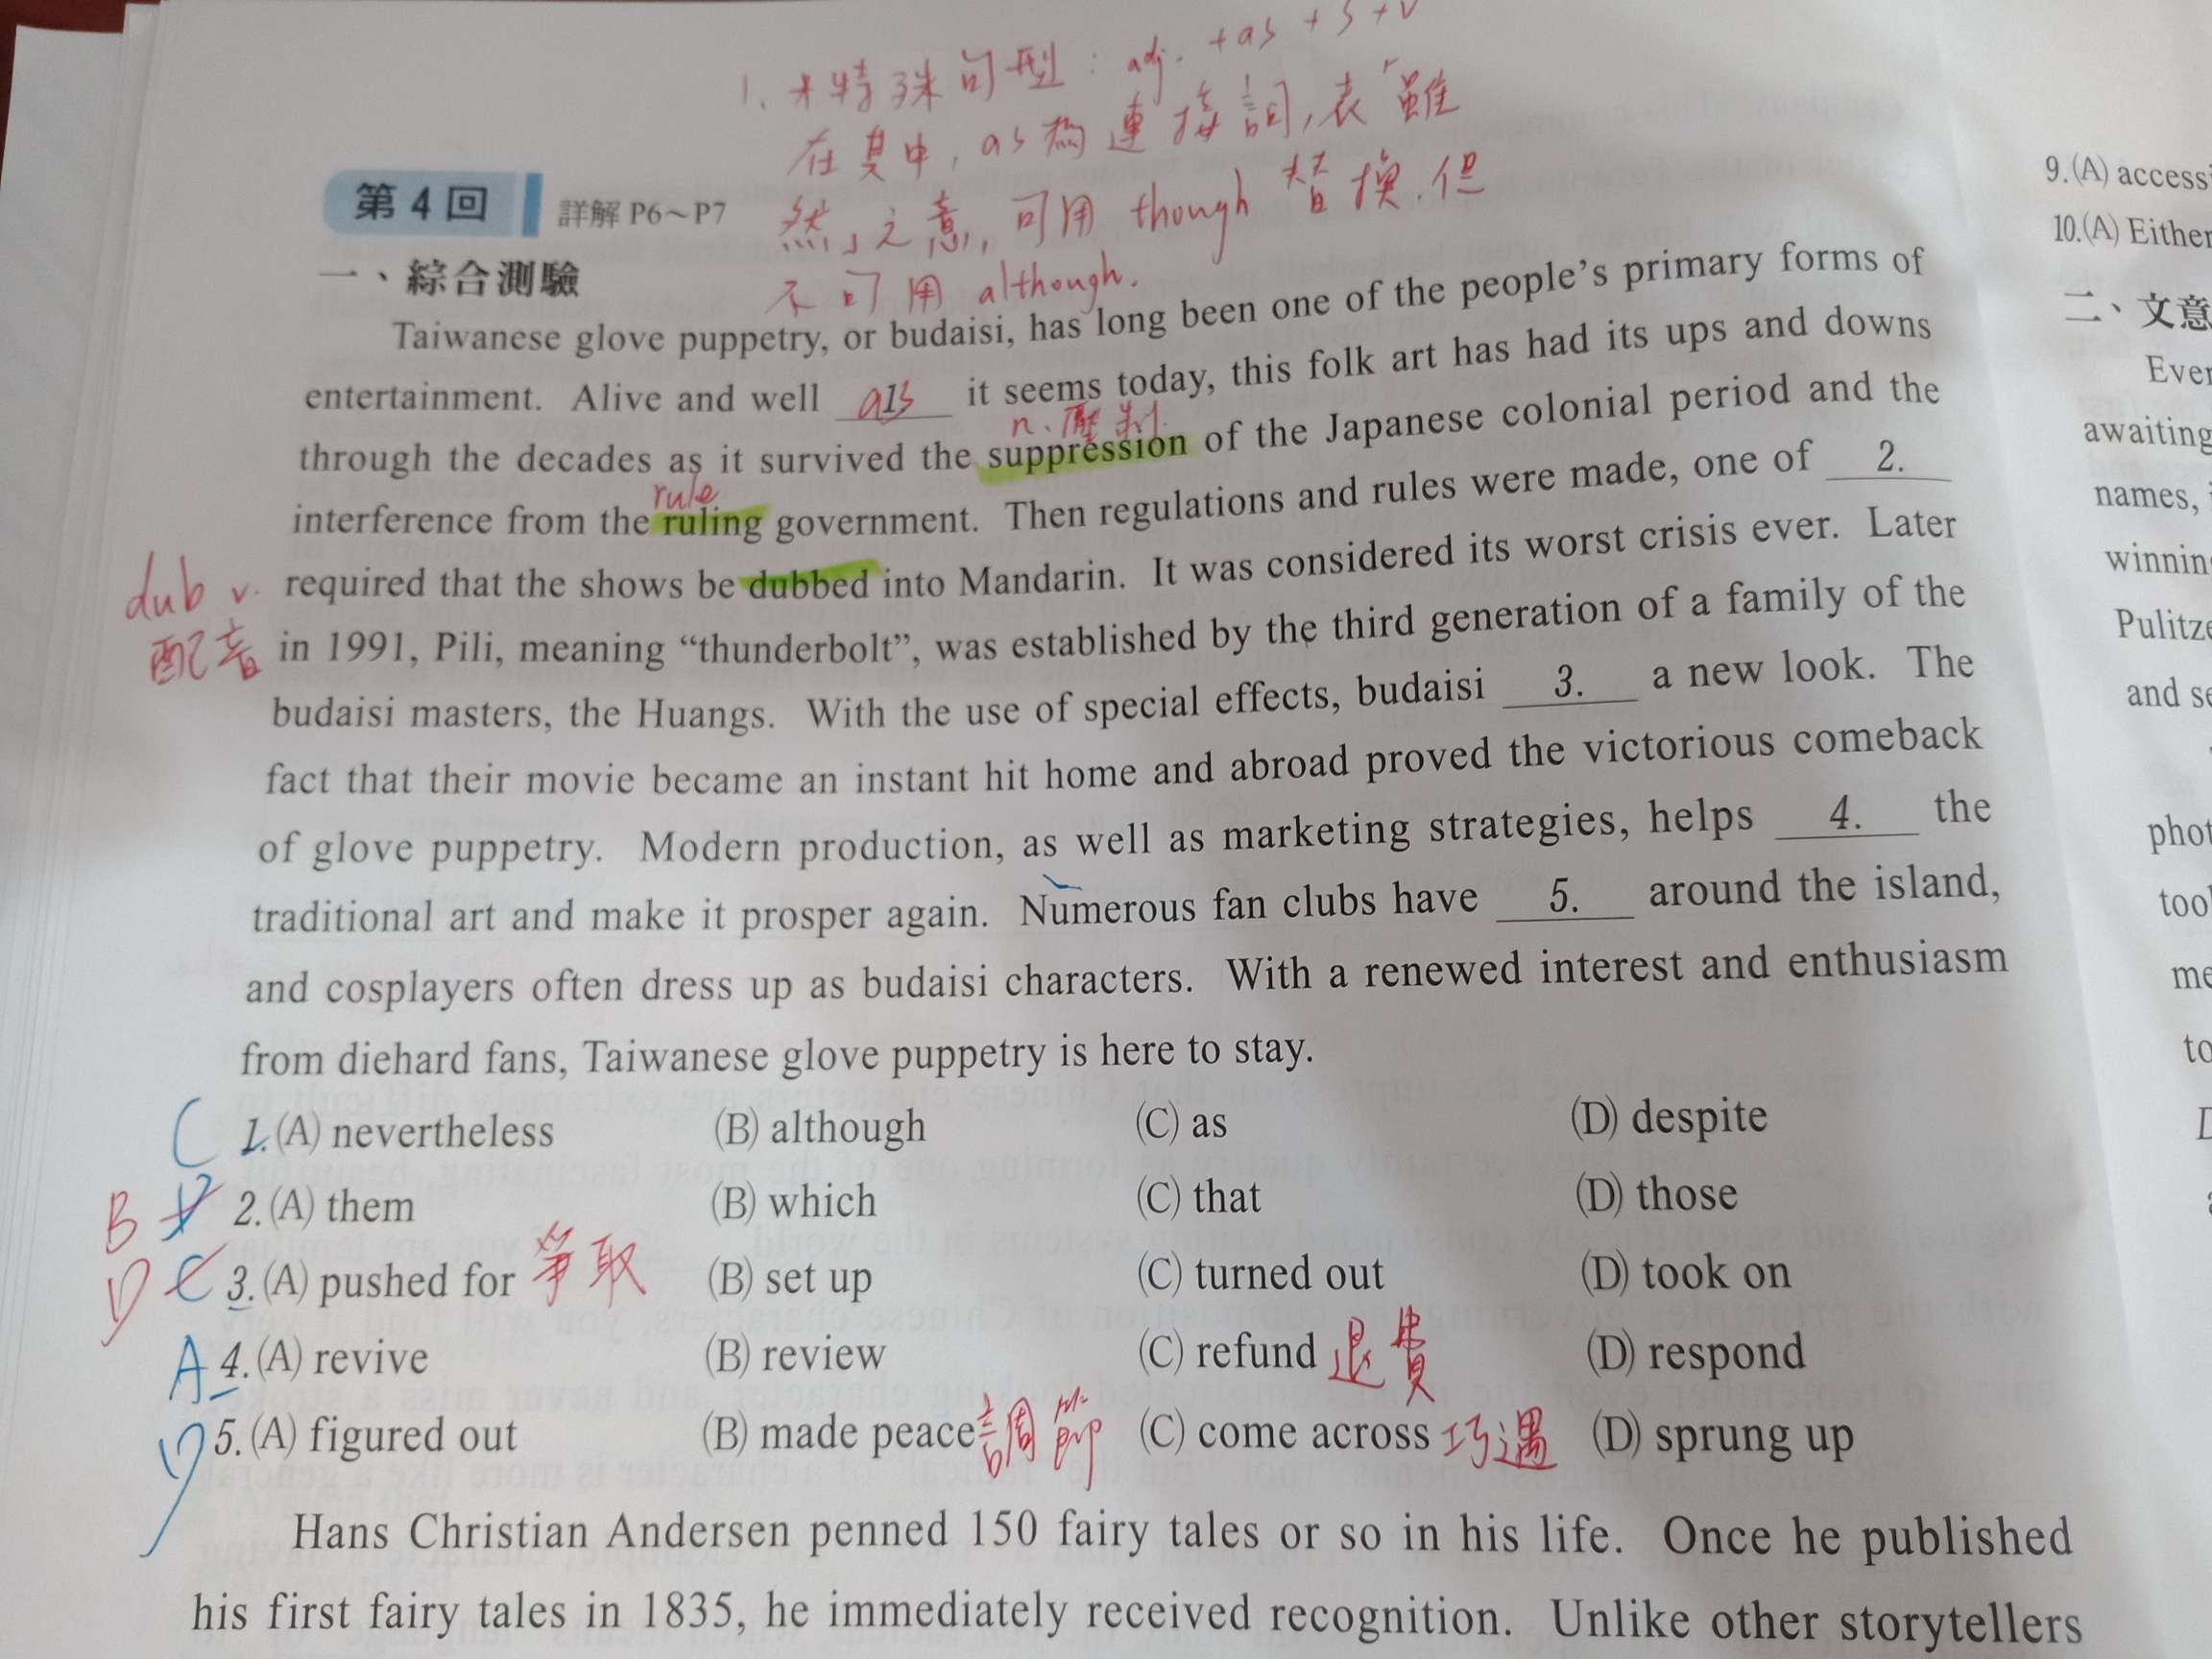 1. *特殊句型：adj. + as + S + V
在其中, as 為連接詞, 表「雖
然」之意, 可用 though 替換. 但
不可用 although.
第 4 回 詳解 P6～P7
一、綜合測驗
Taiwanese glove puppetry, or budaisi, has long been one of the people's primary forms of
entertainment. Alive and well as it seems today, this folk art has had its ups and downs
n. 壓制
through the decades as it survived the suppression of the Japanese colonial period and the
rule
interference from the ruling government. Then regulations and rules were made, one of 2.
dub v.
required that the shows be dubbed into Mandarin. It was considered its worst crisis ever. Later
配音
in 1991, Pili, meaning “thunderbolt”, was established by the third generation of a family of the
budaisi masters, the Huangs. With the use of special effects, budaisi 3. a new look. The
fact that their movie became an instant hit home and abroad proved the victorious comeback
of glove puppetry. Modern production, as well as marketing strategies, helps 4. the
traditional art and make it prosper again. Numerous fan clubs have 5. around the island,
and cosplayers often dress up as budaisi characters. With a renewed interest and enthusiasm
from diehard fans, Taiwanese glove puppetry is here to stay.
C 1.(A) nevertheless (B) although (C) as (D) despite
B 2.(A) them (B) which (C) that (D) those
D C 3.(A) pushed for 爭取 (B) set up (C) turned out (D) took on
A 4.(A) revive (B) review (C) refund 退費 (D) respond
D 5.(A) figured out (B) made peace (C) come across 巧遇 (D) sprung up
Hans Christian Andersen penned 150 fairy tales or so in his life. Once he published
his first fairy tales in 1835, he immediately received recognition. Unlike other storytellers
9.(A)
10.(A) Either
二、文意
awaiting
names,
and